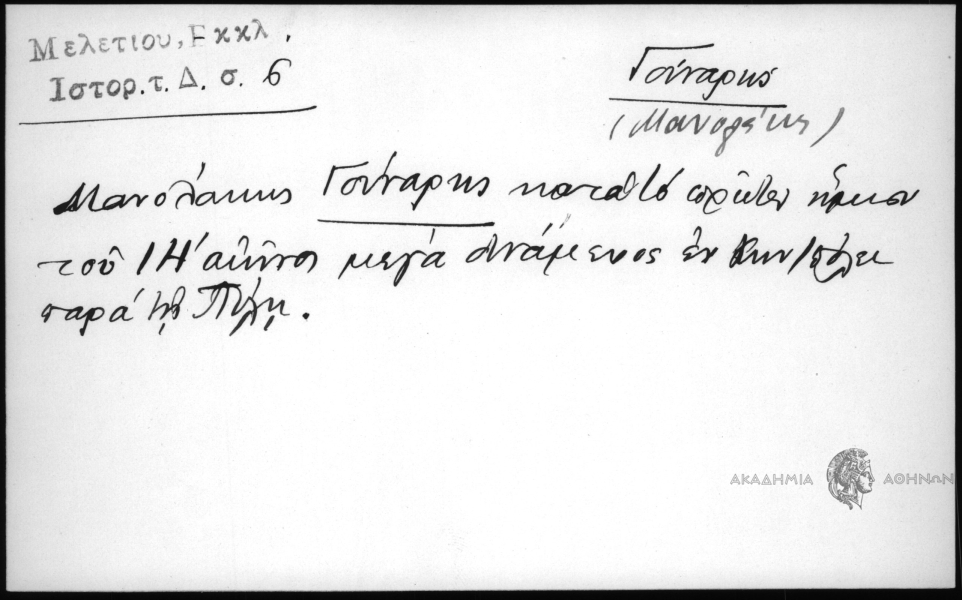 Μελετίου, Εκκλ.
Ιστορ. τ. Δ. σ. 6
Γούναρης
(Μανολάκης)
Μανολάκης Γούναρης κατά τό πρῶτον ἥμισυ
τοῦ ΙΗ' αἰῶνος μεγά δυνάμενος ἐν Κων/πόλει
παρά τῇ Πύλῃ.
ΑΚΑΔΗΜΙΑ ΑΘΗΝΩΝ